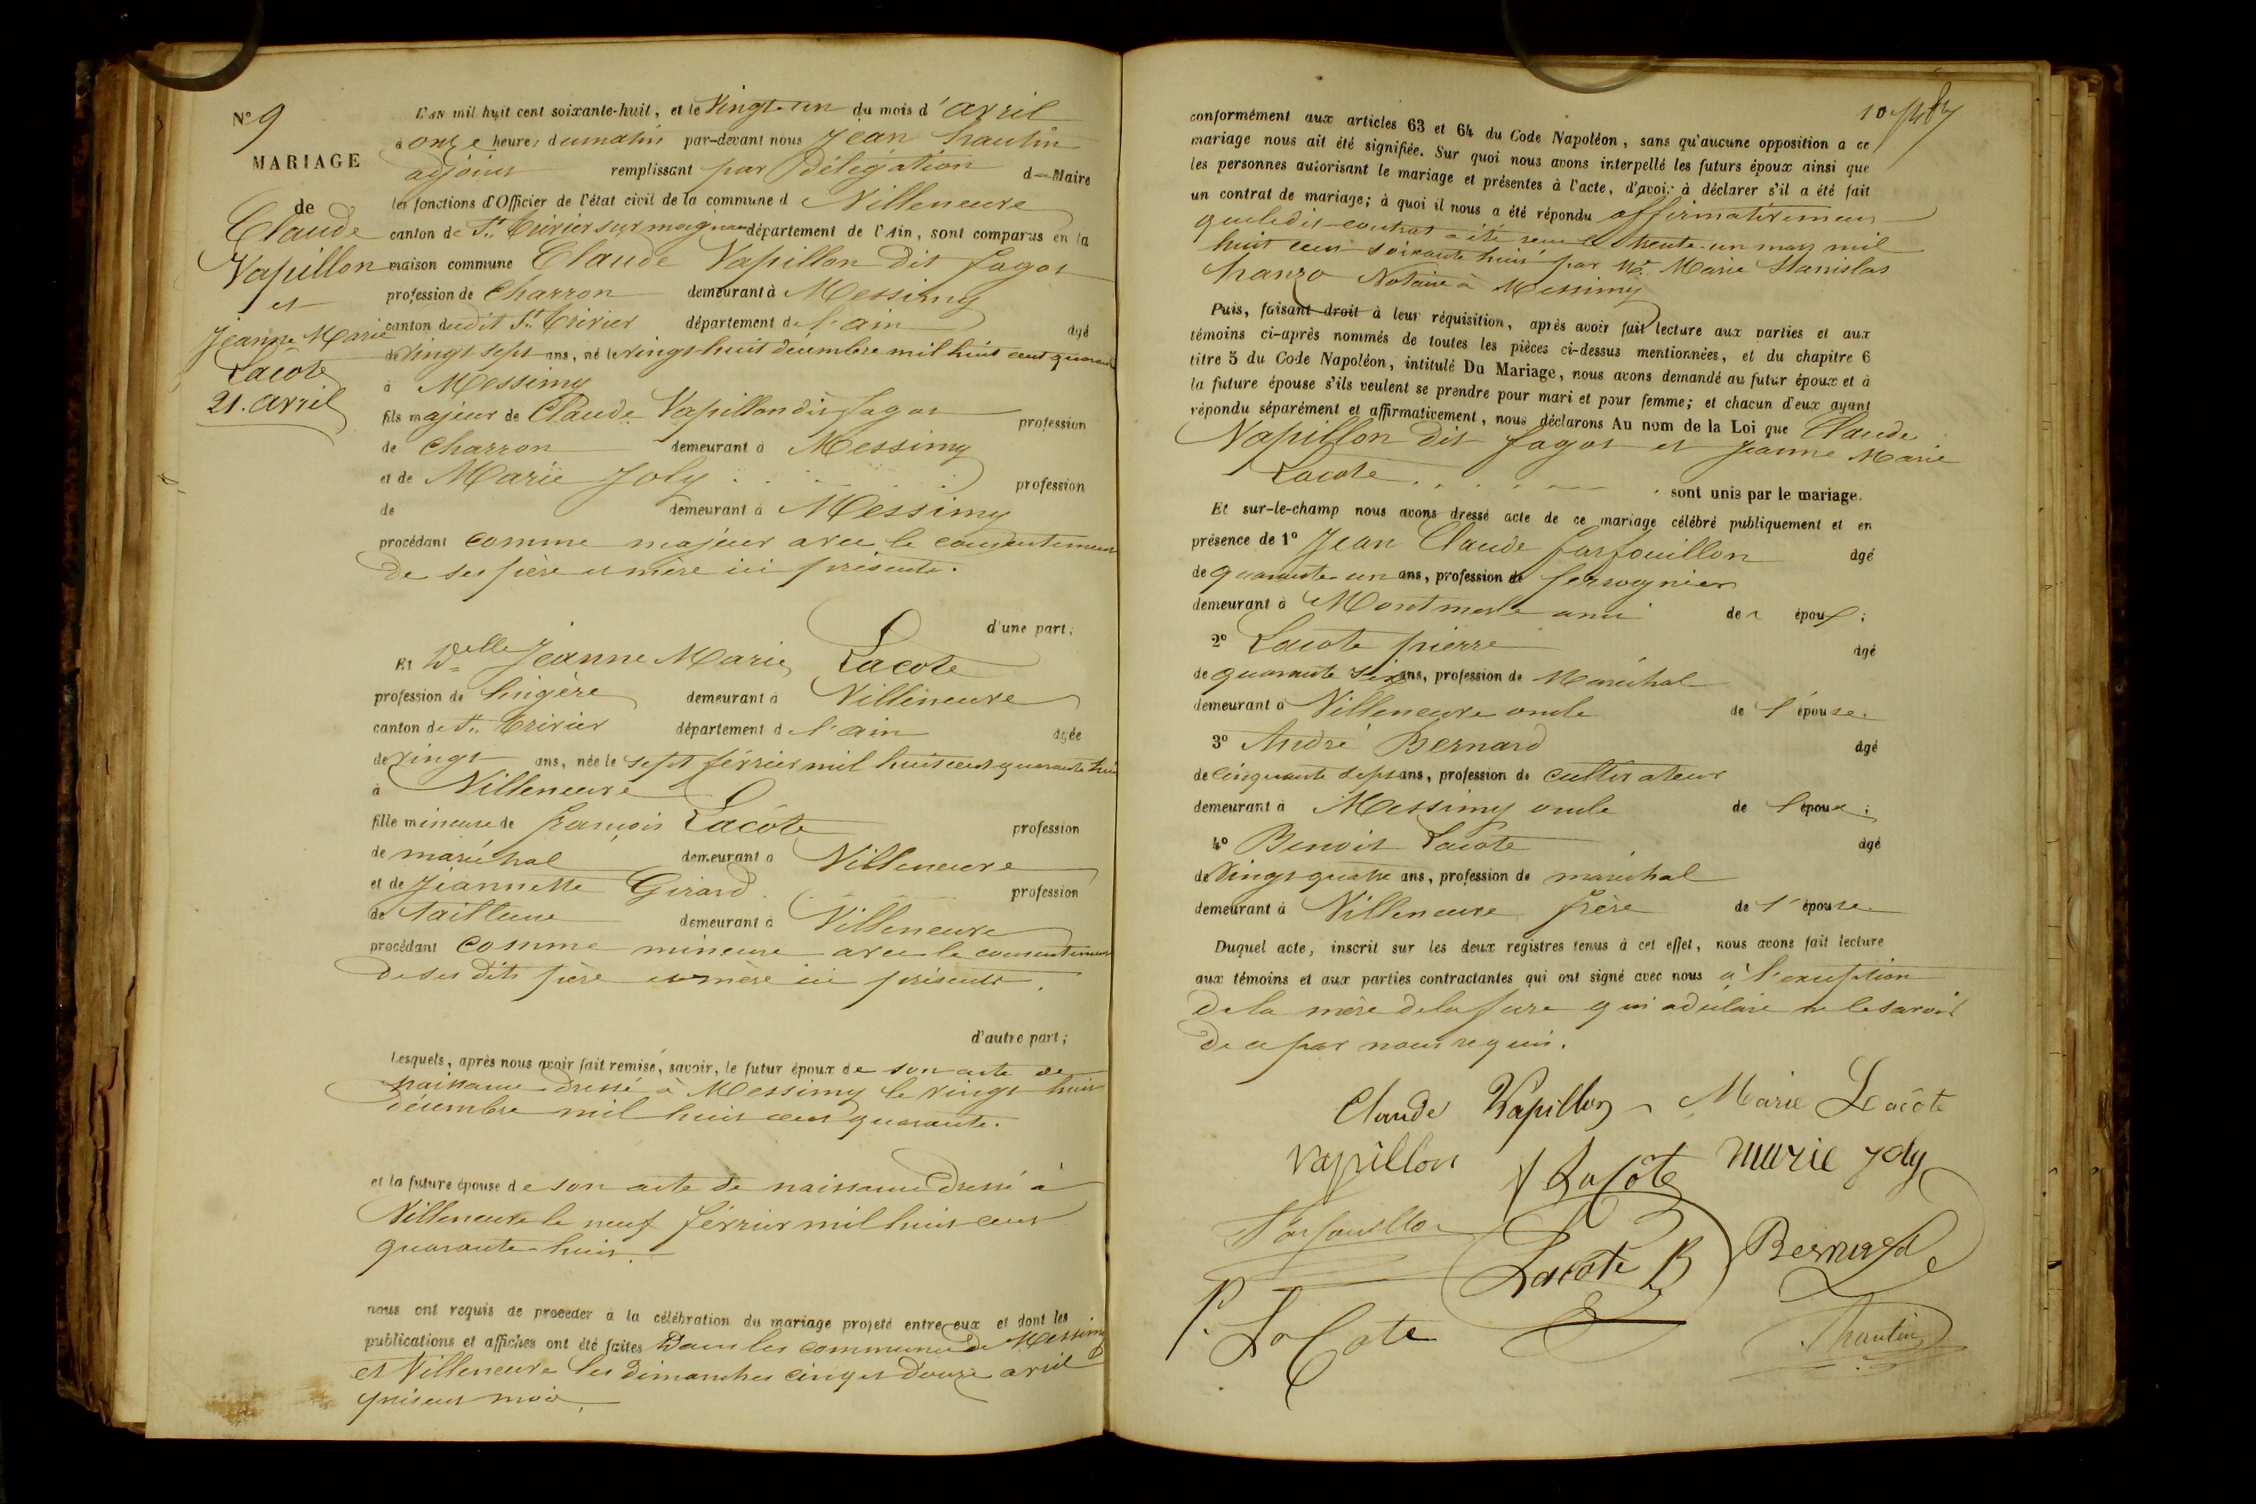 N° 9
MARIAGE
de
Claude
Vapillon
et
Jeanne Marie
Lacote
21. avril
L'an mil huit cent soixante-huit, et le Vingt-un du mois d'avril
à onze heures du matin par-devant nous Jean
adjoint remplissant par Délégation d Maire
les fonctions d'Officier de l'état civil de la commune d Villeneuve
canton de St. Trivier sur moignans département de l'Ain, sont comparus en la
maison commune Claude Vapillon dit fagot
profession de Charron demeurant à Messimy
canton dudit St. Trivier département de l'ain âgé
de vingt sept ans, né le vingt-huit décembre mil huit cent quarante
à Messimy
fils majeur de Claude Vapillon dit fagot profession
de Charron demeurant à Messimy
et de Marie Joly profession
de demeurant à Messimy
procédant comme majeur avec le consentement
de ses père et mère ici présents.
d'une part;
Et Delle Jeanne Marie Lacote
profession de lingère demeurant à Villeneuve
canton de St. Trivier département de l'ain âgée
de vingt ans, née le sept février mil huit cent quarante huit
à Villeneuve
fille mineure de françois Lacôte profession
de maréchal demeurant à Villeneuve
et de Jeannette Girard profession
de tailleuse demeurant à Villeneuve
procédant comme mineure avec le consentement
de ses dits père et mère ici présents.
d'autre part;
Lesquels, après nous avoir fait remise, savoir, le futur époux de son acte de
naissance dressé à Messimy le vingt huit
décembre mil huit cent quarante.
et la future épouse de son acte de naissance dressé à
Villeneuve le neuf février mil huit cent
quarante-huit.
nous ont requis de procéder à la célébration du mariage projeté entre eux et dont les
publications et affiches ont été faites Dans les communes de Messimy
et Villeneuve les dimanches cinq et douze avril
présent mois.
conformément aux articles 63 et 64 du Code Napoléon, sans qu'aucune opposition a ce
mariage nous ait été signifiée. Sur quoi nous avons interpellé les futurs époux ainsi que
les personnes autorisant le mariage et présentes à l'acte, d'avoir à déclarer s'il a été fait
un contrat de mariage; à quoi il nous a été répondu affirmativement
que le dit contrat a été reçu le trente-un mars mil
huit cent soixante huit par Me. Marie Stanislas
Notaire à Messimy
Puis, faisant droit à leur réquisition, après avoir fait lecture aux parties et aux
témoins ci-après nommés de toutes les pièces ci-dessus mentionnées, et du chapitre 6
titre 5 du Code Napoléon, intitulé Du Mariage, nous avons demandé au futur époux et à
la future épouse s'ils veulent se prendre pour mari et pour femme; et chacun d'eux ayant
répondu séparément et affirmativement, nous déclarons Au nom de la Loi que Claude
Vapillon dit fagot et Jeanne Marie
Lacote sont unis par le mariage.
Et sur-le-champ nous avons dressé acte de ce mariage célébré publiquement et en
présence de 1° Jean Claude farfouillon âgé
de quarante un ans, profession de
demeurant à Montmerle ami de l époux;
2° Lacote pierre âgé
de quarante six ans, profession de Maréchal
demeurant à Villeneuve oncle de l'épouse.
3° André Bernard âgé
de cinquante sept ans, profession de cultivateur
demeurant à Messimy oncle de l'époux;
4° Benoit Lacote âgé
de Vingt quatre ans, profession de maréchal
demeurant à Villeneuve frère de l'épouse
Duquel acte, inscrit sur les deux registres tenus à cet effet, nous avons fait lecture
aux témoins et aux parties contractantes qui ont signé avec nous à l'exception
de la mère de la future qui a déclaré ne le savoir
de ce par nous requis.
Claude Vapillon Marie Lacôte
Vapillon Lacôte Marie Joly
Farfouillon
Lacote B Bernard
P. La Cote